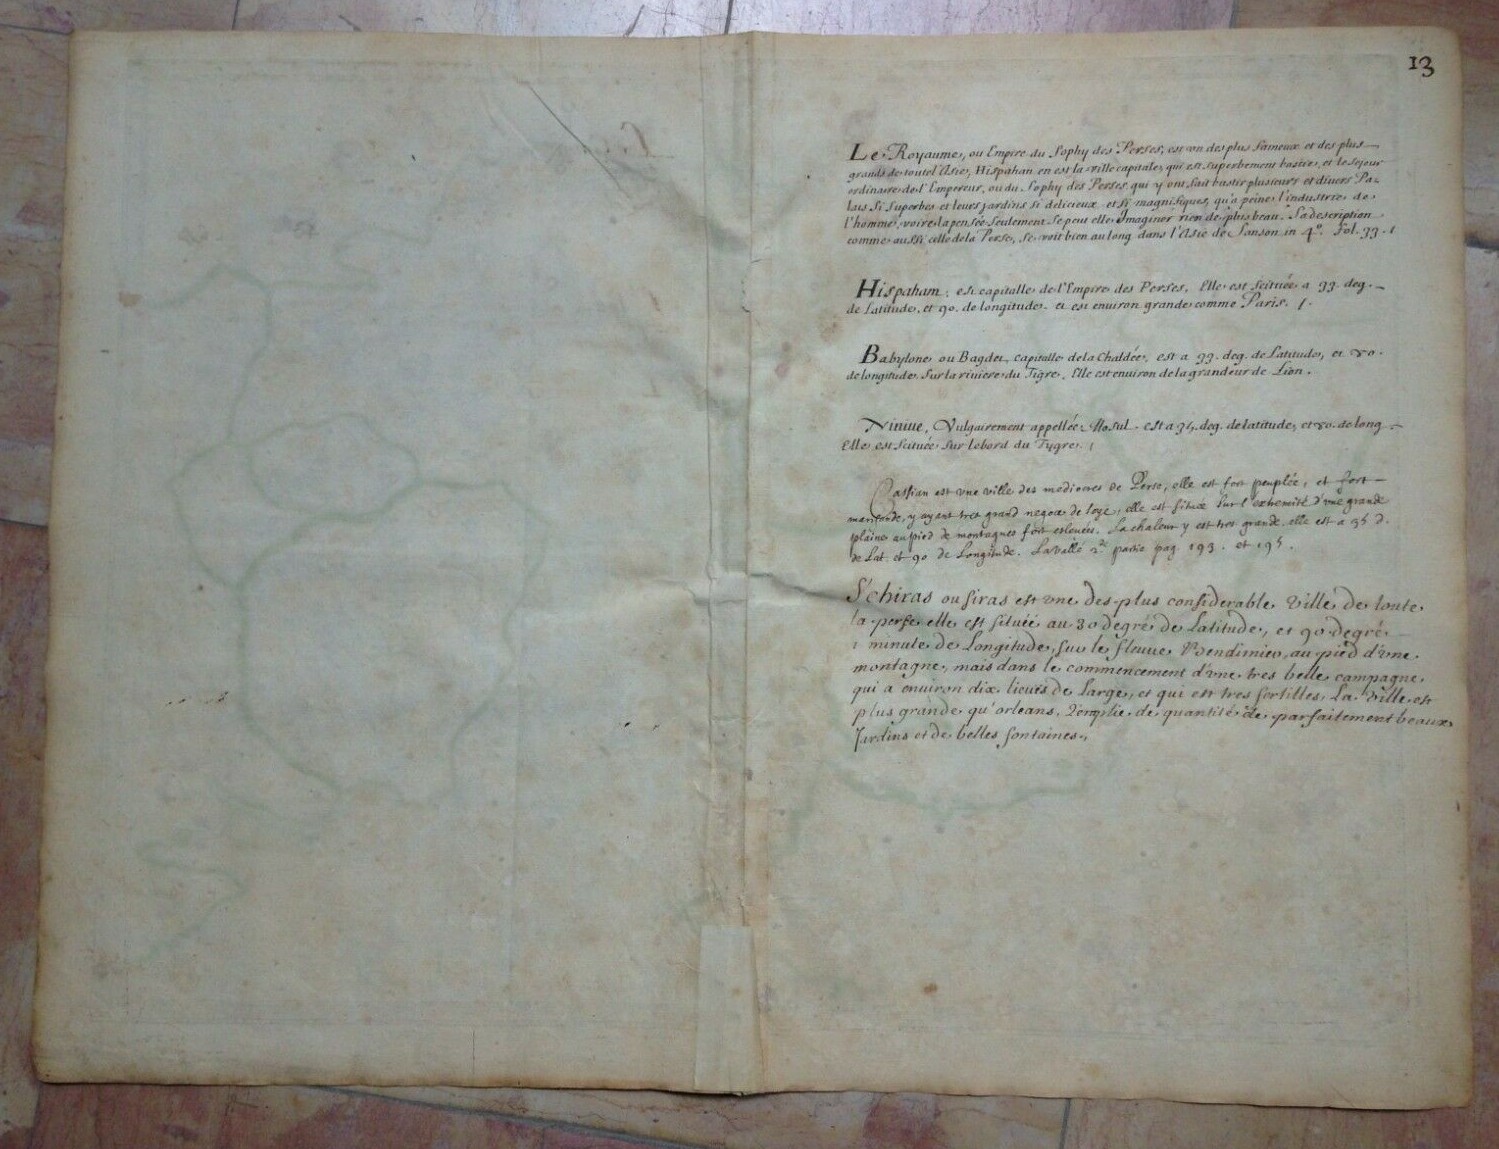 13
Le Royaume, ou Empire du Sophy des Perses, est un des plus fameux et des plus
grands de toute l'Asie, Hispahan en est la ville capitale, qui est superbement bastie, et le sejour
ordinaire de l'Empereur, ou du Sophy des Perses qui y ont fait bastir plusieurs et divers Pa-
lais si superbes et leurs jardins si delicieux et si magnifiques, qu'a peine l'industrie de
l'homme, voire la pensée seulement se peut elle Imaginer rien de plus beau. Sa description
comme aussi celle de la Perse, se voit bien au long dans l'Asie de Sanson in 4°. Fol. 33.
Hispaham, est capitalle de l'Empire des Perses. Elle est scituée a 33 deg.
de Latitude, et 90. de longitude. et est environ grande comme Paris.
Babylone ou Bagdet capitalle de la Chaldée, est a 33. deg. de Latitude, et 80.
de longitude. Sur la riviere du Tigre. Elle est environ de la grandeur de Lion.
Ninive, Vulgairement appellée Mosul est a deg. de latitude, et 80. de long.
Elle est scituée sur le bord du Tygre.
Cassian est une ville des mediocres de Perse, elle est fort peuplée, et fort
marchande, y ayant tres grand negoce de soye, elle est situee sur l'extremité d'une grande
plaine au pied de montagnes fort eslevées. La chaleur y est tres grande. elle est a 35 d.
de Lat. et 90 de Longitude. La Vallé 2de partie pag. 193. et 195.
Schiras ou siras est une des plus considerable Ville de toute
la perse elle est située au 30 degré de Latitude, et 90 degré
1 minute de Longitude, sur le fleuve Bendimir, au pied d'une
montagne, mais dans le commencement d'une tres belle campagne,
qui a environ dix lieuës de Large, et qui est tres fertilles, La Ville est
plus grande qu'orleans, Remplie de quantité de parfaitement beaux
Jardins et de belles fontaines.